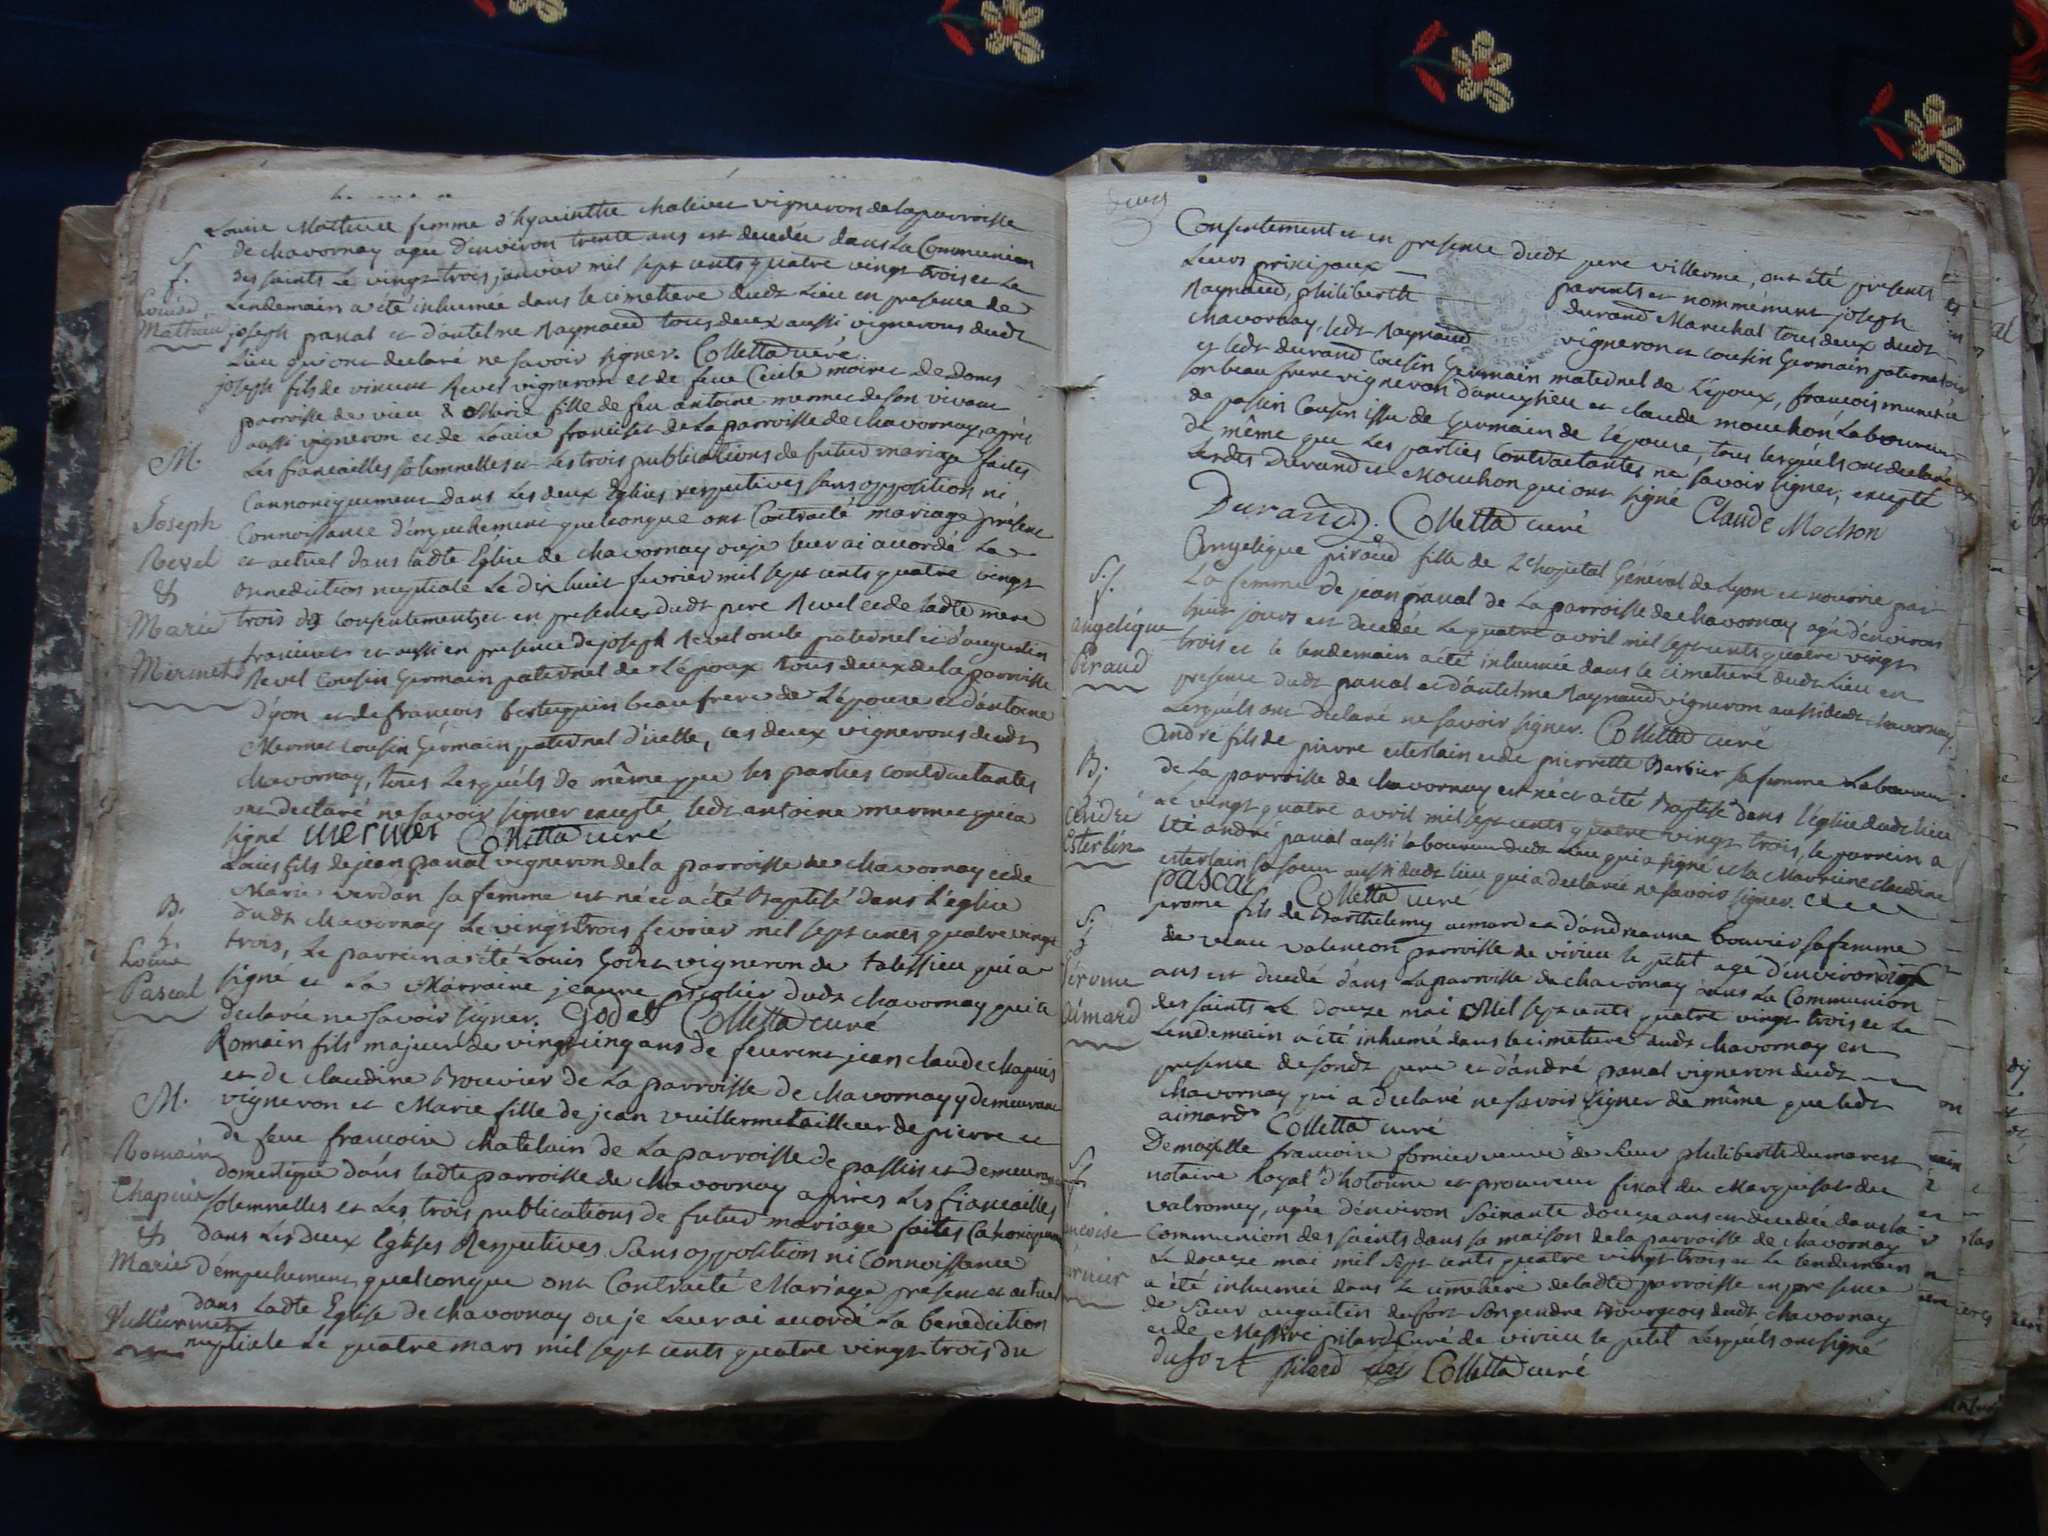 Louise Mathieu femme d'hyacinthe vigneron de la parroisse
de chavornay agée d'environ trente ans est decedée dans la Communion
des saints le vingt trois janvier mil sept cents quatre vingt trois et le
Lendemain a été inhumée dans le cimetiere dudt Lieu en presence de
joseph pascal et d'antelme Raynaud tous deux aussi vignerons dudt
Lieu qui ont declaré ne savoir signer. Colletta curé
S.
f.
Louise
Mathieu
joseph fils de vincent Revel vigneron et de feue Cecile moiret de Dons
parroisse de vieu & Marie fille de feu antoine mermet de son vivant
aussi vigneron et de Louise francillet de la parroisse de chavornay, après
Les fiancailles solemnelles et les trois publications de futur mariage faites
Cannoniquement dans les deux Eglises respectives sans opposition ni
Connoissance d'empechement quelconque ont Contracté mariage présent
et actuel dans ladte Eglise de chavornay ou je leur ai accordé La
Benediction nuptiale Le dix huit fevrier mil sept cents quatre vingt
trois du consentement et en presence dudt pere Revel et de ladte mere
francillet et aussi en presence de joseph Revel oncle paternel et d'augustin
Revel Cousin Germain paternel de L'époux tous deux de la parroisse
d'yon et de francois bertuquin beau frere de L'épouse et d'antoine
Mermet cousin Germain paternel d'icelle, ces deux vignerons dudt
chavornay, tous Lesquels de même que les parties contractantes
ont declaré ne savoir signer excepté ledt antoine mermet qui a
signé mermet Colletta curé
M.
Joseph
Revel
&
Marie
Mermet
Louis fils de jean pascal vigneron de la parroisse de chavornay et de
Marie verdan sa femme est né et a été Baptisé dans l'église
dudt chavornay Le vingt trois fevrier mil sept cents quatre vingt
trois, Le parrein a été Louis Godet vigneron de talissieu qui a
signé et La Marraine jeanne dudt chavornay qui a
declaré ne savoir signer. Godet Colletta curé
B.
f.
Louise
Pascal
Romain fils majeur de vingt cinq ans de feu jean claude chapuis
et de claudine Bouvier de La parroisse de chavornay y demeurant
vigneron et Marie fille de jean vuillermet tailleur de pierre et
de feue francoise chatelain de La parroisse de passin et demeurant
domestique dans ladte parroisse de chavornay après les fiancailles
solemnelles et Les trois publications de futur mariage faites Canoniquement
dans Les deux Eglises Respectives sans opposition ni Connoissance
d'émpechement quelconque ont Contracté Mariage present et actuel
dans ladte Eglise de chavornay ou je Leur ai accordé La benediction
nuptiale Le quatre mars mil sept cents quatre vingt trois du
M.
Romain
Chapuis
&
Marie
Vuillermet
Consentement et en presence dudt pere villerme, ont été présents
Leurs principaux parents et nommément joseph
Raynaud, philiberth durand Marechal tous deux dudt
chavornay, ledt Raynaud vigneron et cousin Germain paternel
et ledt durand Cousin Germain maternel de L'époux, francois
son beau frere vigneron d'ameyzieu et claude mouchon Laboureur
de passin Cousin issu de Germain de l'épouse, tous lesquels ont declaré
de même que Les parties Contractantes ne savoir signer, excepté
Lesdts Durand et Mouchon qui ont signé
Durand. Colletta curé Claude Mochon
Angelique piraud fille de L'hopital Général de Lyon et nourrie par
La femme de jean pascal de La parroisse de chavornay agée d'environ
huit jours est decedée Le quatre avril mil sept cents quatre vingt
trois et le lendemain a été inhumée dans le cimetiere dudt Lieu en
presence dudt pascal et d'antelme Raynaud vigneron aussi dudt chavornay
Lesquels ont declaré ne savoir signer. Colletta curé
S.
f.
angelique
Piraud
André fils de pierre esterlain et de pierrette Barbier sa femme Laboureur
de La parroisse de chavornay est né et a été Baptisé dans l'église dudt lieu
Le vingt quatre avril mil sept cents quatre vingt trois, le parrein a
été andré pascal aussi laboureur dudt Lieu qui a signé et la Marreine claudine
esterlain sa soeur aussi dudt lieu qui a declaré ne savoir signer.
pascal Colletta curé
B.
André
Esterlin
jerome fils de Barthelemy aimard et d'andreanne bouvier sa femme
de vieu valencon parroisse de virieu le petit agé d'environ dix
ans est decedé dans La parroisse de chavornay dans La Communion
des saints Le douze mai Mil sept cents quatre vingt trois et Le
Lendemain a été inhumé dans le cimetiere dudt chavornay en
presence de sondt pere et d'andré pascal vigneron dudt
chavornay qui a declaré ne savoir signer de même que ledt
aimard Colletta curé
S.
Jérome
Aimard
Demoiselle francoise fornier veuve de sieur philiberth dumarest
notaire Royal d'hotonne et procureur fiscal du Marquisat du
valromey, agée d'environ soixante douze ans est decedée dans la
Communion des saints dans sa maison de la parroisse de chavornay
Le douze mai mil sept cents quatre vingt trois et le lendemain
a été inhumée dans Le cimetiere de ladte parroisse en presence
de sieur augustin dufort son gendre Bourgeois dudt chavornay
et de Messire pilard Curé de virieu le petit Lesquels ont signé
dufort pilard curé Colletta curé